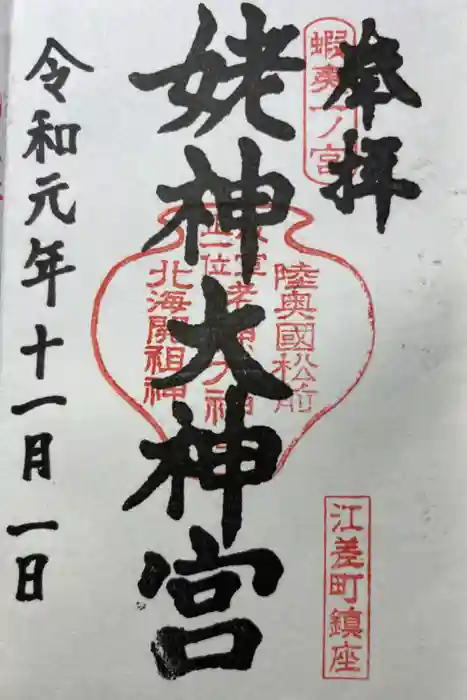 奉拝
蝦夷一ノ宮
江差町鎮座
陸奥國松前
北海開祖神
姥神大神宮
令和元年十一月一日